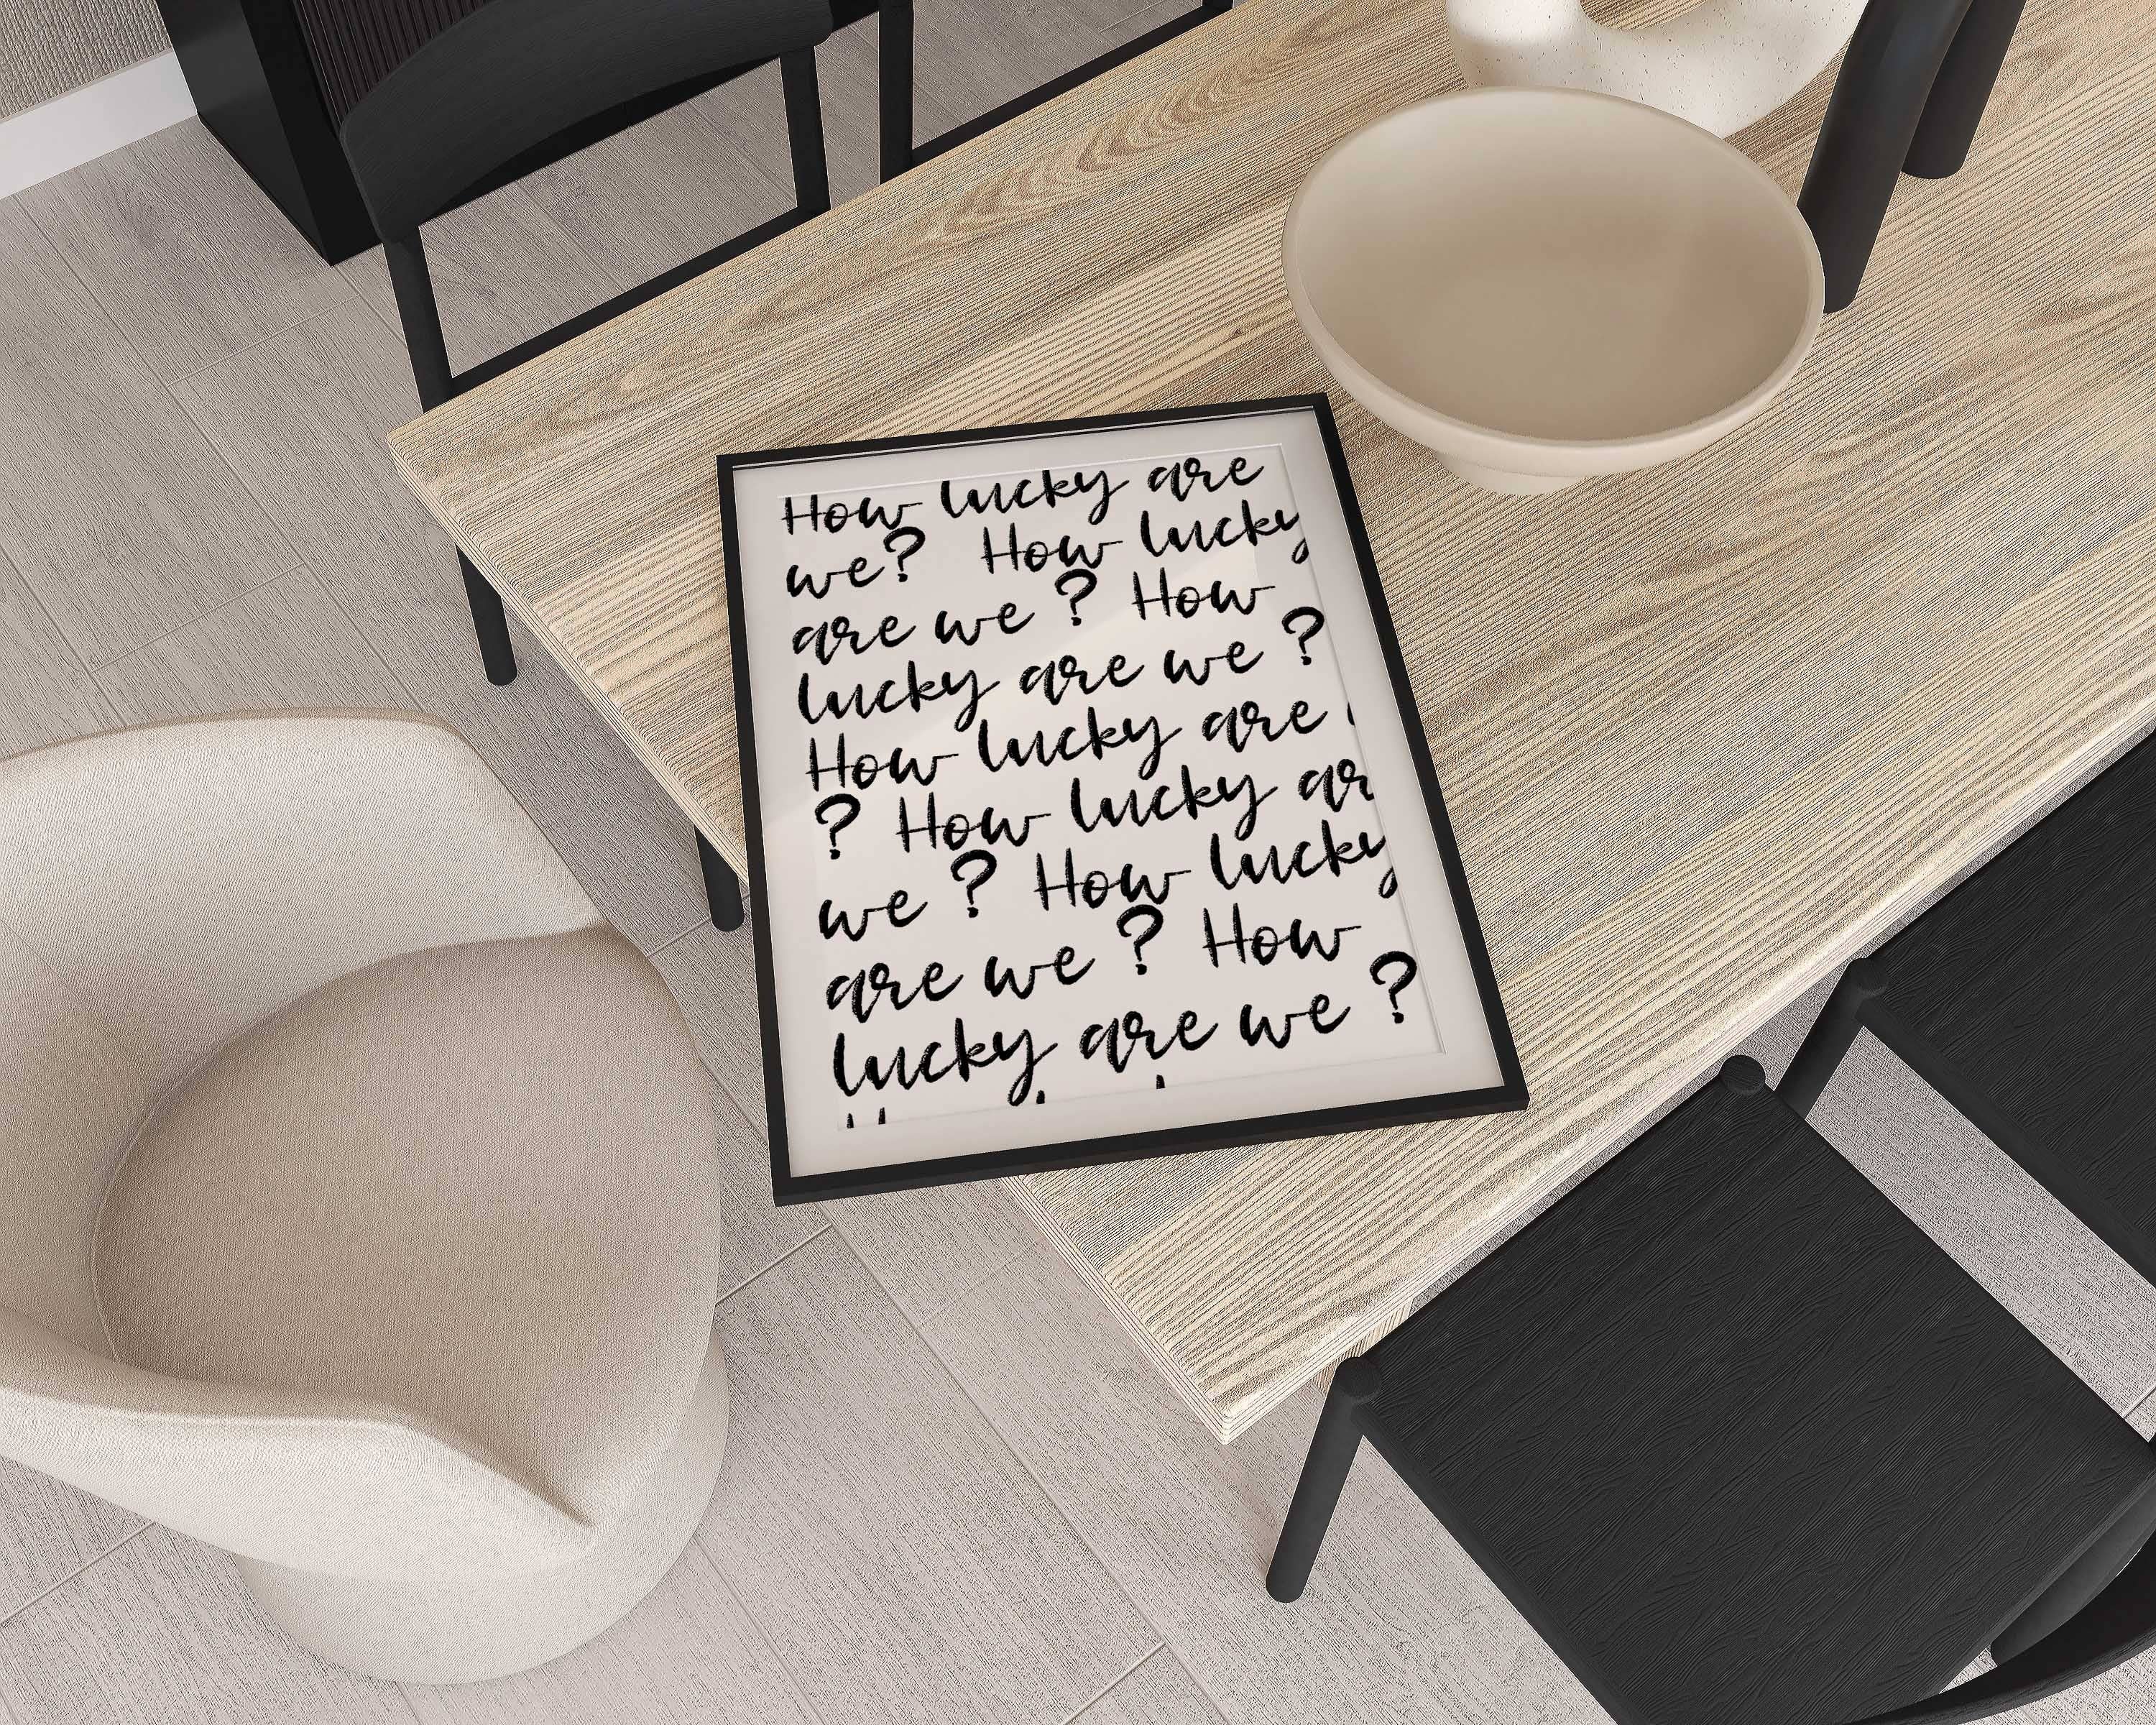 How lucky are
we? How lucky
are we ? How
lucky are we ?
How lucky are
? How lucky ar
we ? How lucky
are we ? How
lucky are we ?